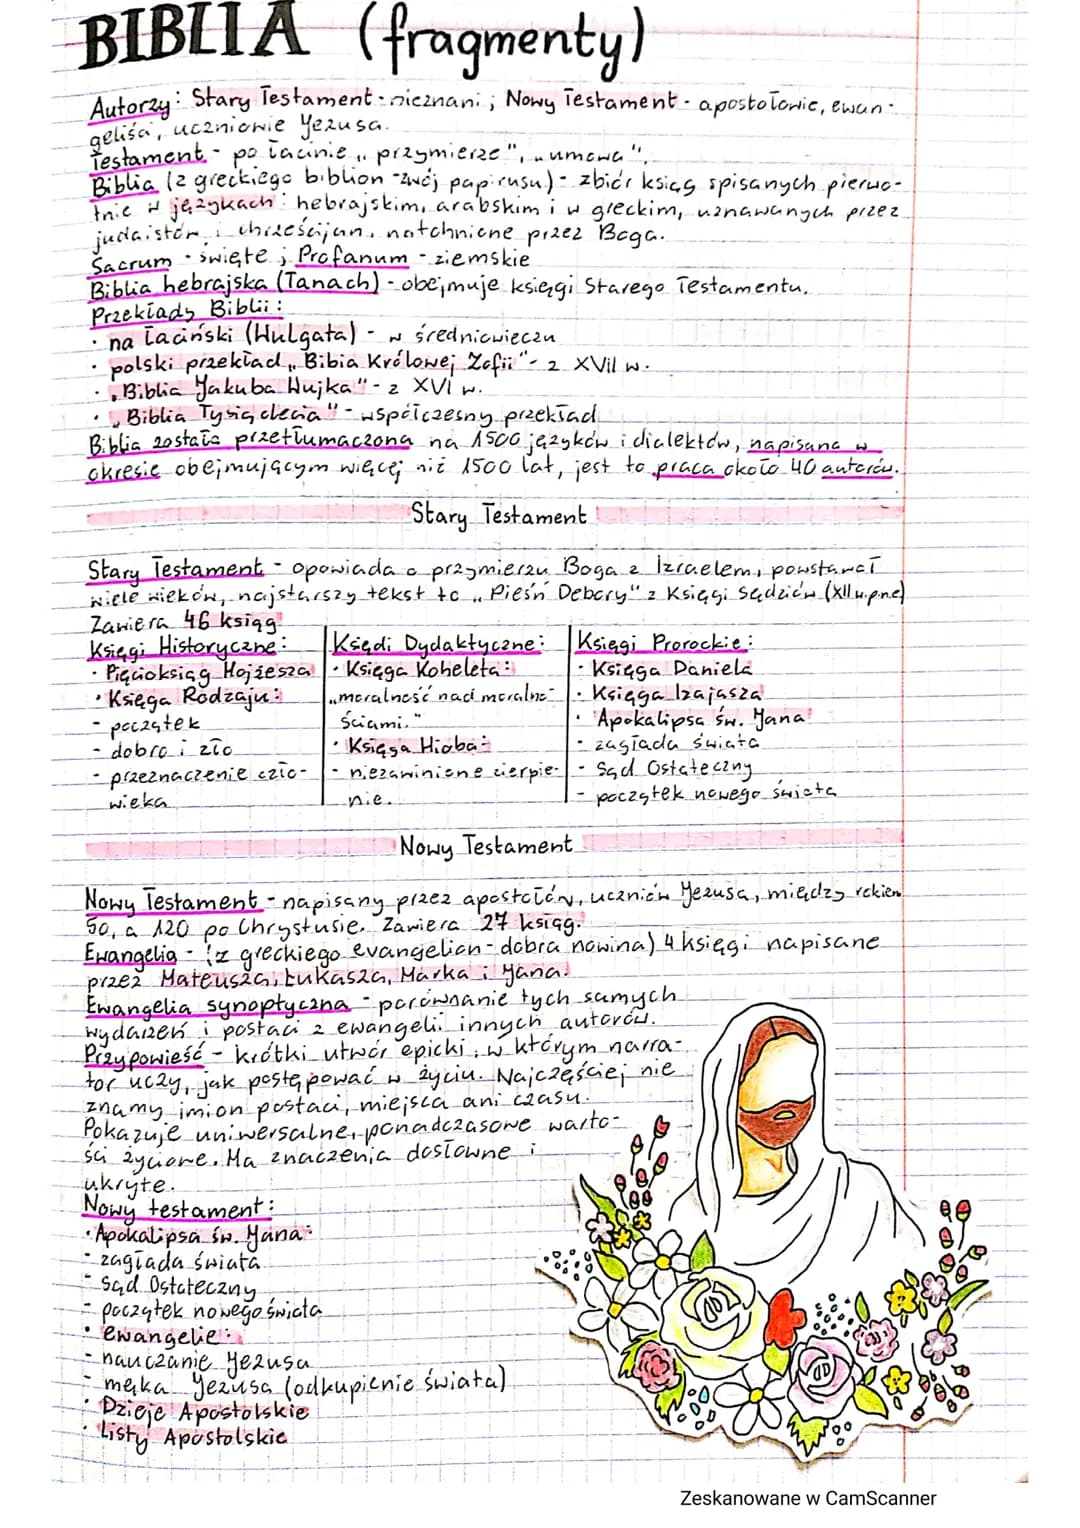 BIBLIA (fragmenty)
Autorzy: Stary Testament - nieznani; Nowy Testament - apostołowie, ewan-
geliści, uczniowie Jezusa.
Testament - po łacinie „przymierze", „umowa".
Biblia (z greckiego biblion - zwój papirusu) - zbiór ksiąg spisanych pierwo-
tnie w językach: hebrajskim, arabskim i w greckim, uznawanych przez
judaistów i chrześcijan, natchnione przez Boga.
Sacrum - święte; Profanum - ziemskie
Biblia hebrajska (Tanach) - obejmuje księgi Starego Testamentu.
Przekłady Biblii:
· na łaciński (Wulgata) - w średniowieczu
· polski przekład „Bibia Królowej Zofii" - z XVII w.
· „Biblia Jakuba Wujka" - z XVI w.
· „Biblia Tysiąclecia" - współczesny przekład
Biblia została przetłumaczona na 1500 języków i dialektów, napisana w
okresie obejmującym więcej niż 1500 lat, jest to praca około 40 autorów.
Stary Testament
Stary Testament - opowiada o przymierzu Boga z Izraelem, powstawał
wiele wieków, najstarszy tekst to „Pieśń Debory" z Księgi Sędziów (XII w.p.ne)
Zawiera 46 ksiąg
Księgi Historyczne:
· Pięcioksiąg Mojżesza
· Księga Rodzaju:
- początek
- dobro i zło
- przeznaczenie czło-
wieka
Księdi Dydaktyczne:
· Księga Koheleta:
„moralność nad moralno-
ściami."
· Księga Hioba:
- niezawinione cierpie-
nie.
Księgi Prorockie:
· Księga Daniela
· Księga Izajasza
· Apokalipsa św. Jana:
- zagłada świata
- Sąd Ostateczny
- początek nowego świata
Nowy Testament
Nowy Testament - napisany przez apostołów, uczniów Jezusa, między rokiem
50, a 120 po Chrystusie. Zawiera 27 ksiąg.
Ewangelia - (z greckiego evangelion - dobra nowina) 4 księgi napisane
przez Mateusza, Łukasza, Marka i Jana.
Ewangelia synoptyczna - porównanie tych samych
wydarzeń i postaci z ewangelii innych autorów.
Przypowieść - krótki utwór epicki, w którym narra-
tor uczy, jak postępować w życiu. Najczęściej nie
znamy imion postaci, miejsca ani czasu.
Pokazuje uniwersalne, ponadczasowe warto-
ści życiowe. Ma znaczenia dosłowne i
ukryte.
Nowy testament:
· Apokalipsa św. Jana:
- zagłada świata
- Sąd Ostateczny
- początek nowego świata
· ewangelie:
- nauczanie Jezusa
- męka Jezusa (odkupienie świata)
· Dzieje Apostolskie
· Listy Apostolskie
Zeskanowane w CamScanner